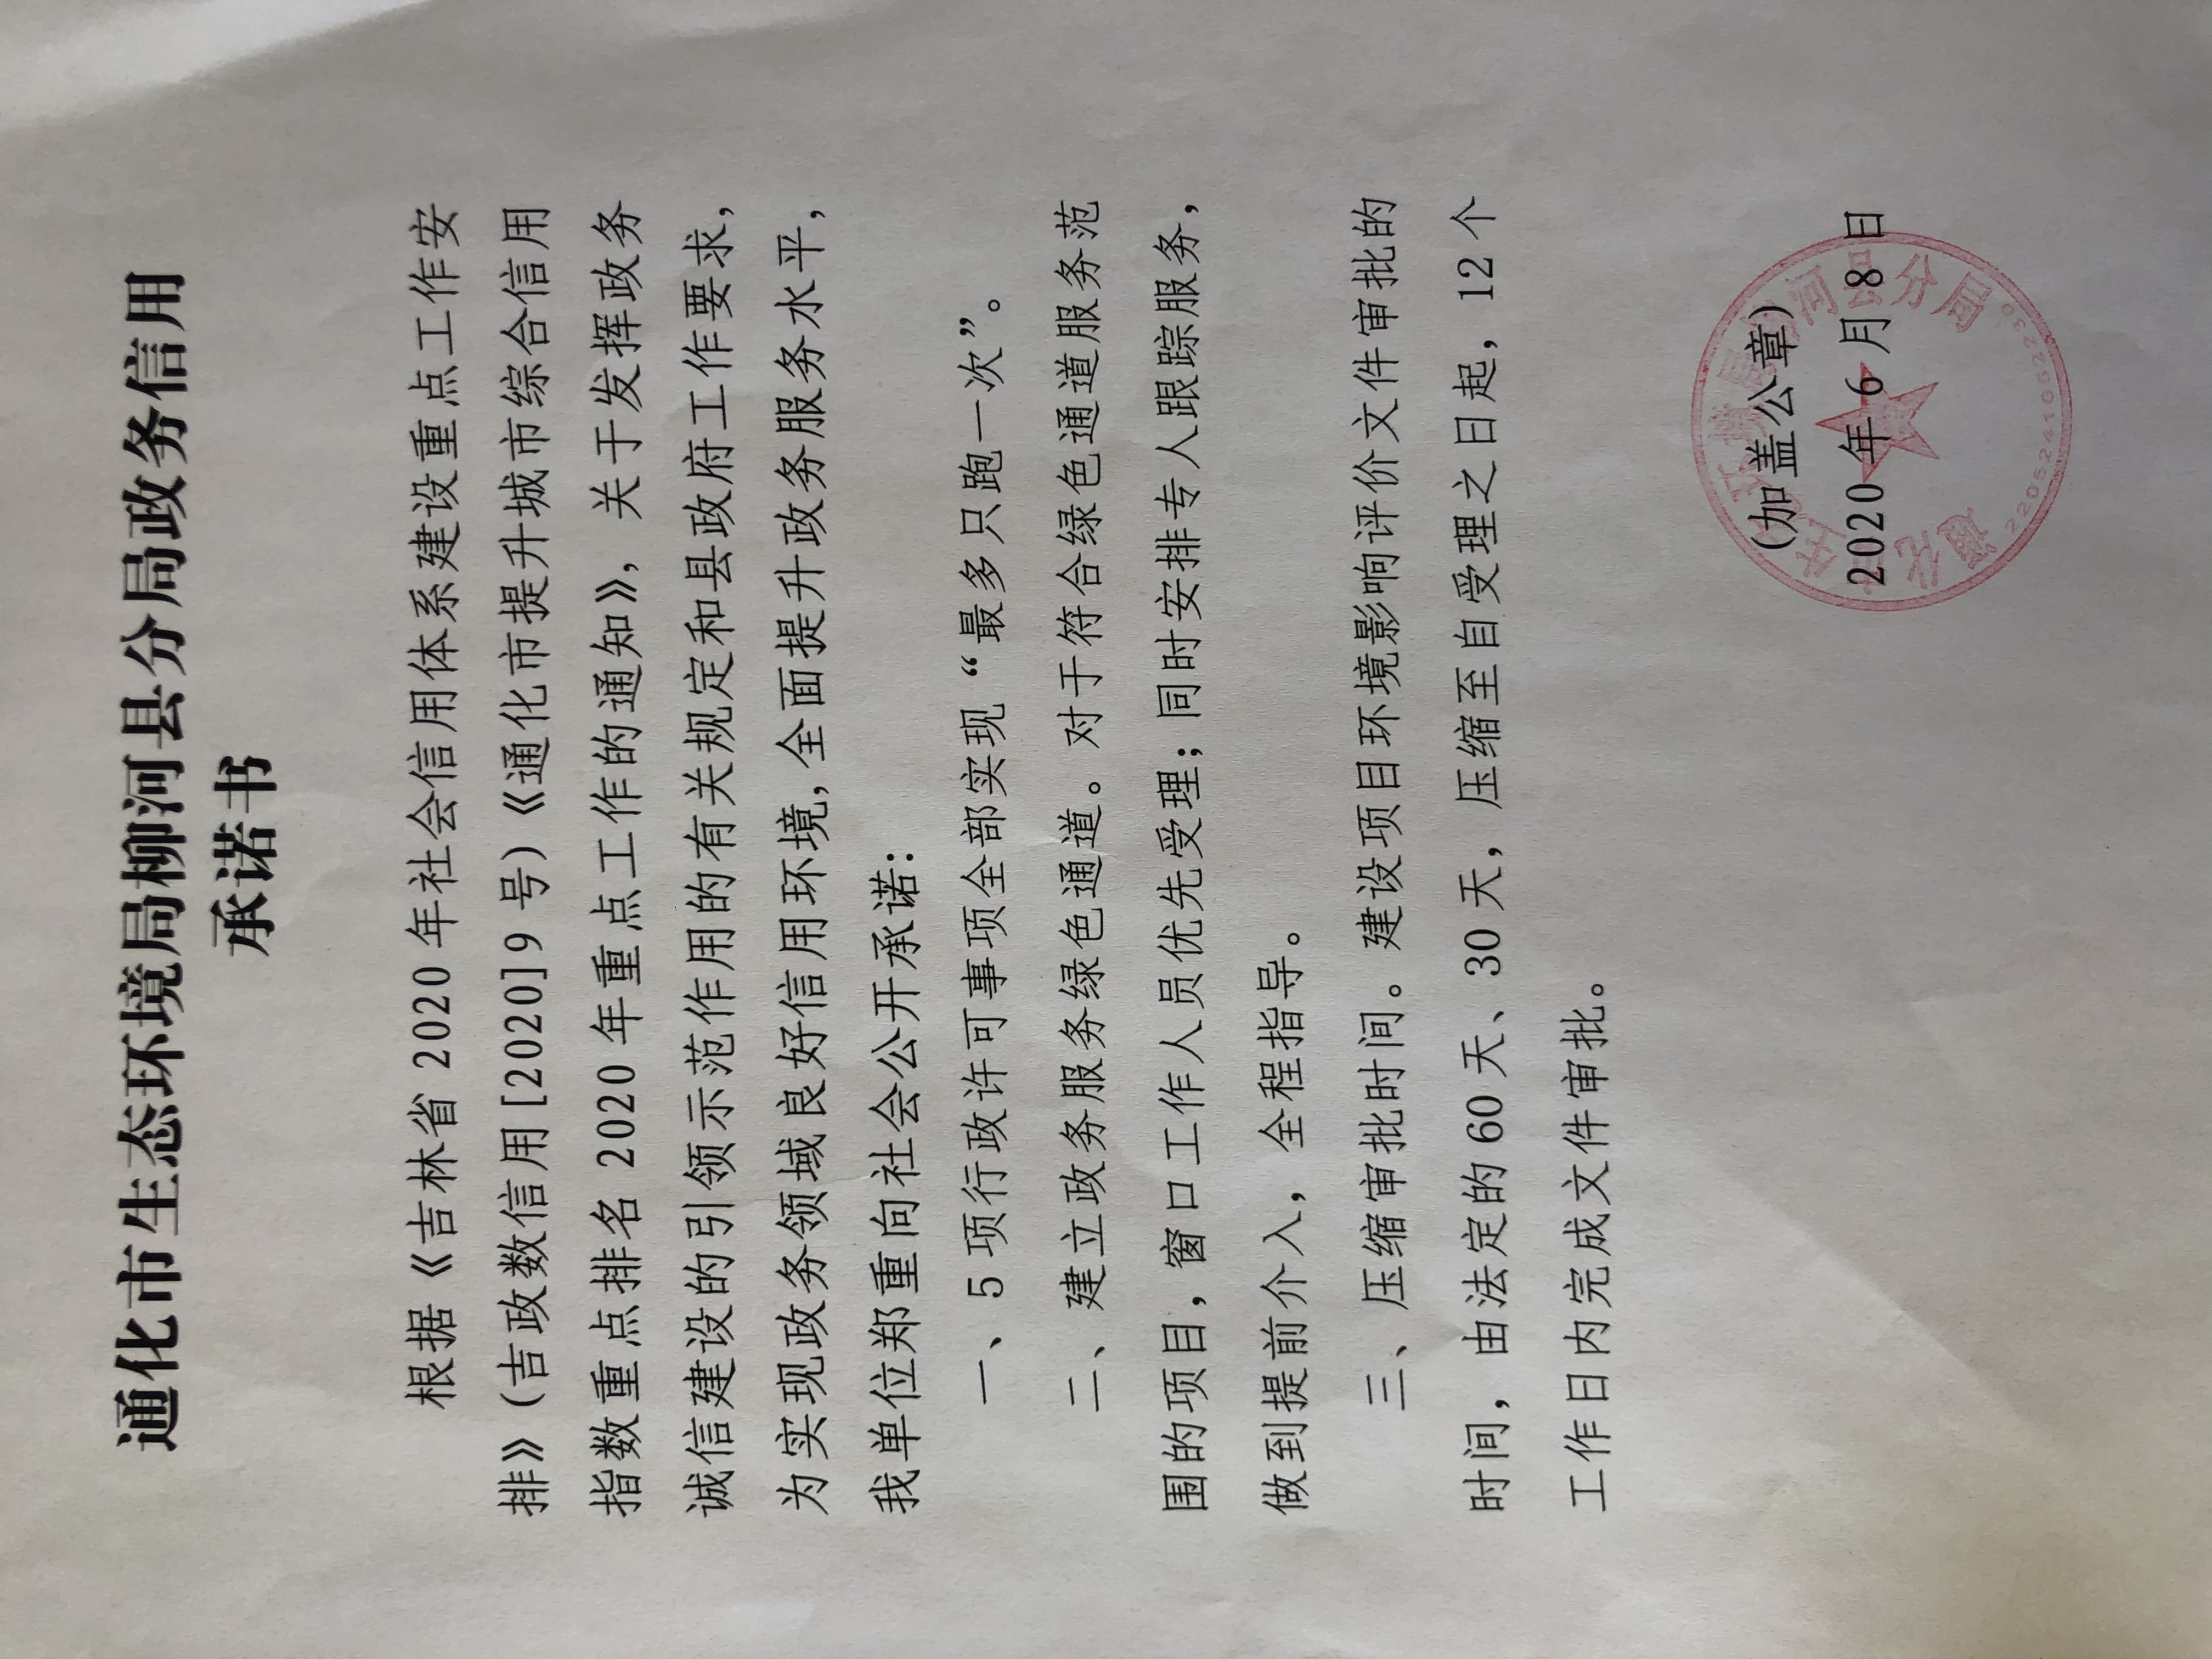 通化市生态环境局柳河县分局政务信用
承诺书
根据《吉林省 2020 年社会信用体系建设重点工作安
排》（吉政数信用[2020]9 号）《通化市提升城市综合信用
指数重点排名 2020 年重点工作的通知》，关于发挥政务
诚信建设的引领示范作用的有关规定和县政府工作要求，
为实现政务领域良好信用环境，全面提升政务服务水平，
我单位郑重向社会公开承诺：
一、5 项行政许可事项全部实现“最多只跑一次”。
二、建立政务服务绿色通道。对于符合绿色通道服务范
围的项目，窗口工作人员优先受理；同时安排专人跟踪服务，
做到提前介入，全程指导。
三、压缩审批时间。建设项目环境影响评价文件审批的
时间，由法定的 60 天、30 天，压缩至自受理之日起，12 个
工作日内完成文件审批。
（加盖公章）
2020 年 6 月 8 日
通化市生态环境局柳河县分局